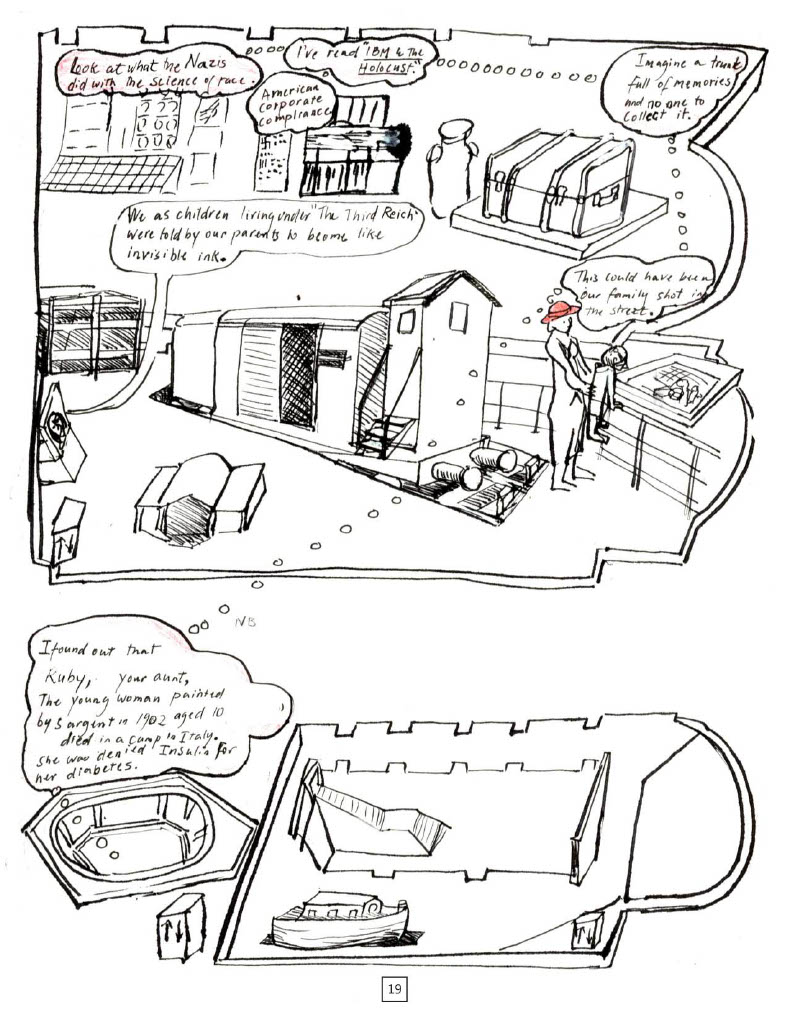 Look at what the Nazis
did with the science of race.
I've read "IBM & The
Holocust."
American
Corporate
Compliance
Imagine a trunk
full of memories
and no one to
collect it.
We as children living under "The Third Reich"
were told by our parents to become like
invisible ink.
This could have been
our family shot in
the street.
NB
I found out that
Ruby, your aunt,
The young woman painted
by Sargent in 1902 aged 10
died in a camp in Italy.
She was denied Insulin for
her diabetes.
19